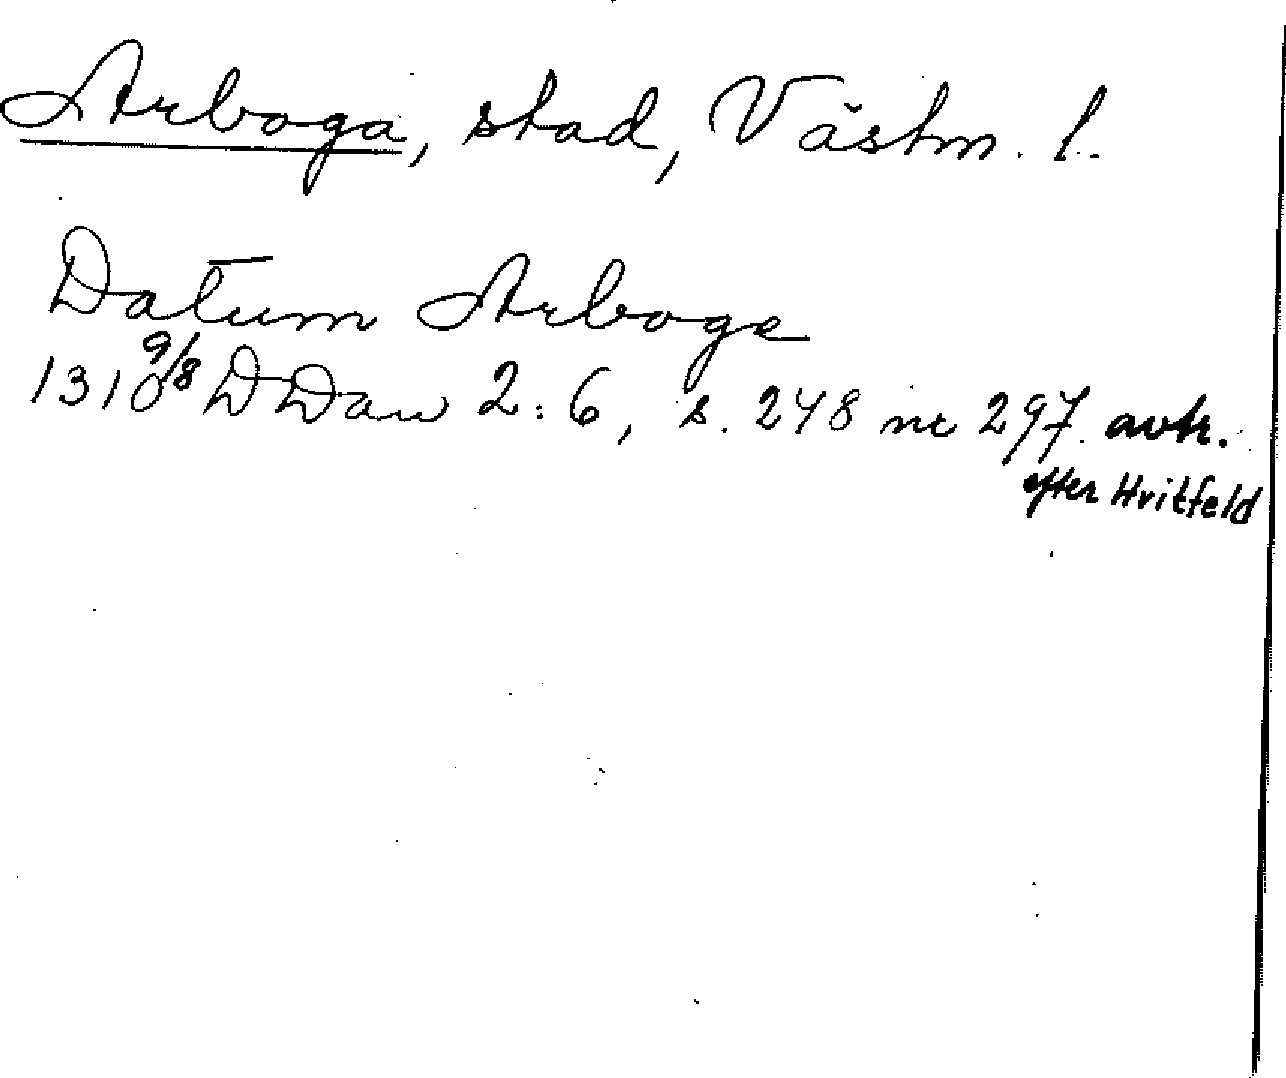 Arboga, stad, Västm. l.
Datum Arboge
1310 9/8 DDan 2:6, s. 248 nr 297. avtr.
efter Hvitfeld